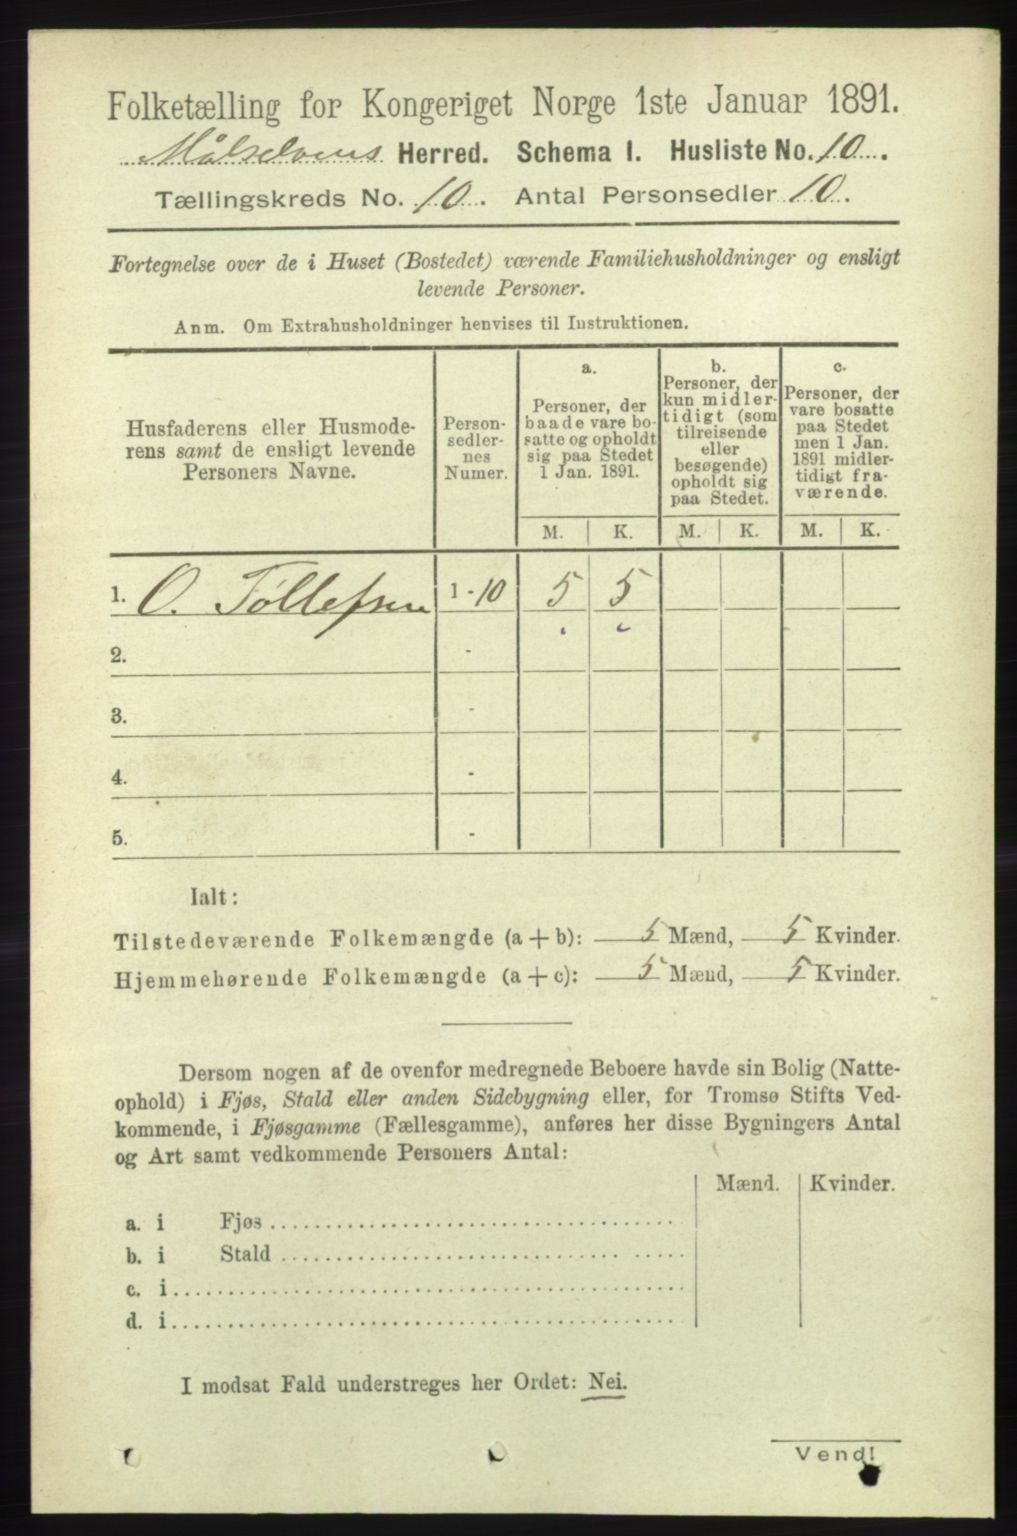 Folketælling for Kongeriget Norge 1ste Januar 1891.
Målselvens Herred. Schema I. Husliste No. 10.
Tællingskreds No. 10. Antal Personsedler 10.
Fortegnelse over de i Huset (Bostedet) værende Familiehusholdninger og ensligt
levende Personer.
Anm. Om Extrahusholdninger henvises til Instruktionen.
Husfaderens eller Husmode-
rens samt de ensligt levende
Personers Navne.
Person-
sedler-
nes
Numer.
a.
Personer, der
baade vare bo-
satte og opholdt
sig paa Stedet
1 Jan. 1891.
b.
Personer, der
kun midler-
tidigt (som
tilreisende
eller
besøgende)
opholdt sig
paa Stedet.
c.
Personer, der
vare bosatte
paa Stedet
men 1 Jan.
1891 midler-
tidigt fra-
værende.
M. K. M. K. M. K.
1. O. Tøllefsen 1-10 5 5
2. -
3. -
4. -
5. -
Ialt:
Tilstedeværende Folkemængde (a+b): 5 Mænd, 5 Kvinder.
Hjemmehørende Folkemængde (a+c): 5 Mænd, 5 Kvinder.
Dersom nogen af de ovenfor medregnede Beboere havde sin Bolig (Natte-
ophold) i Fjøs, Stald eller anden Sidebygning eller, for Tromsø Stifts Ved-
kommende, i Fjøsgamme (Fællesgamme), anføres her disse Bygningers Antal
og Art samt vedkommende Personers Antal:
Mænd. Kvinder.
a. i Fjøs
b. i Stald
c. i
d. i
I modsat Fald understreges her Ordet: Nei.
Vend!